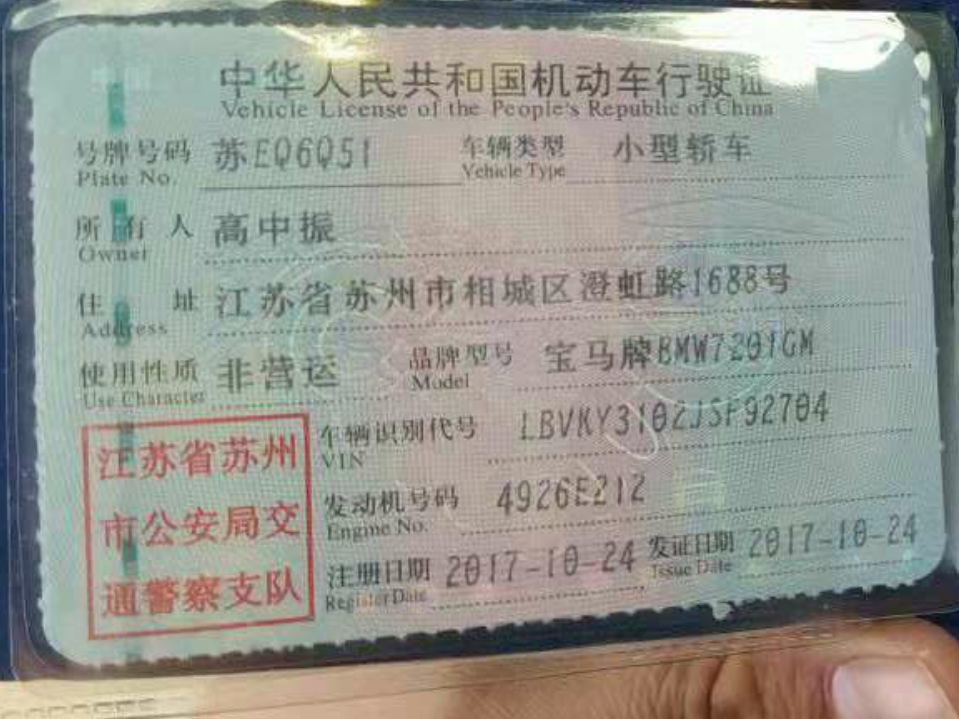 中华人民共和国机动车行驶证
Vehicle License of the People's Republic of China
号牌号码 苏EQ6Q51 车辆类型 小型轿车
Plate No. Vehicle Type
所有人 高中振
Owner
住址 江苏省苏州市相城区澄虹路1688号
Address
使用性质 非营运 品牌型号 宝马牌BMW7201GM
Use Character Model
江苏省苏州
市公安局交
通警察支队
车辆识别代号 LBVKY3102JSF92704
VIN
发动机号码 4926E212
Engine No.
注册日期 2017-10-24 发证日期 2017-10-24
Register Date Issue Date